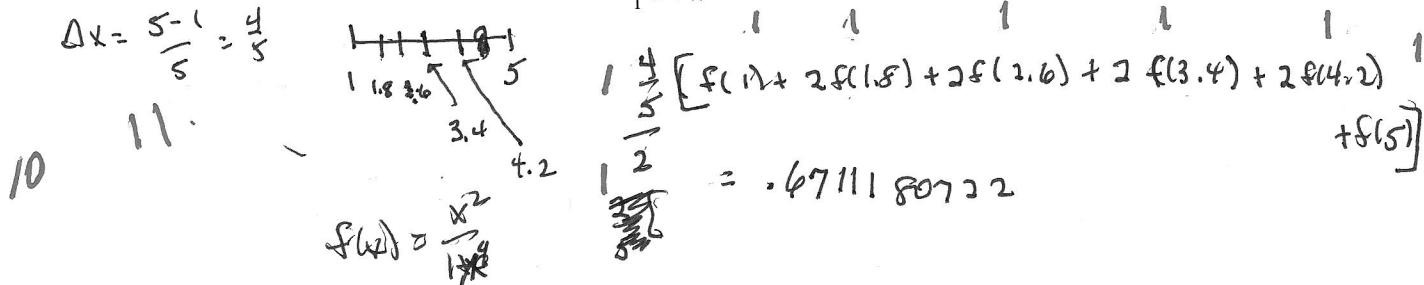 Δx = 5-1/5 = 4/5
1 1.8 2.6 5
3.4
4.2
11.
10
f(x) = x²/1+x⁴
1 1 1 1 1 1
1 4/5/2 [f(1) + 2f(1.8) + 2f(2.6) + 2f(3.4) + 2f(4.2)
+f(5)]
1 = .6711180722